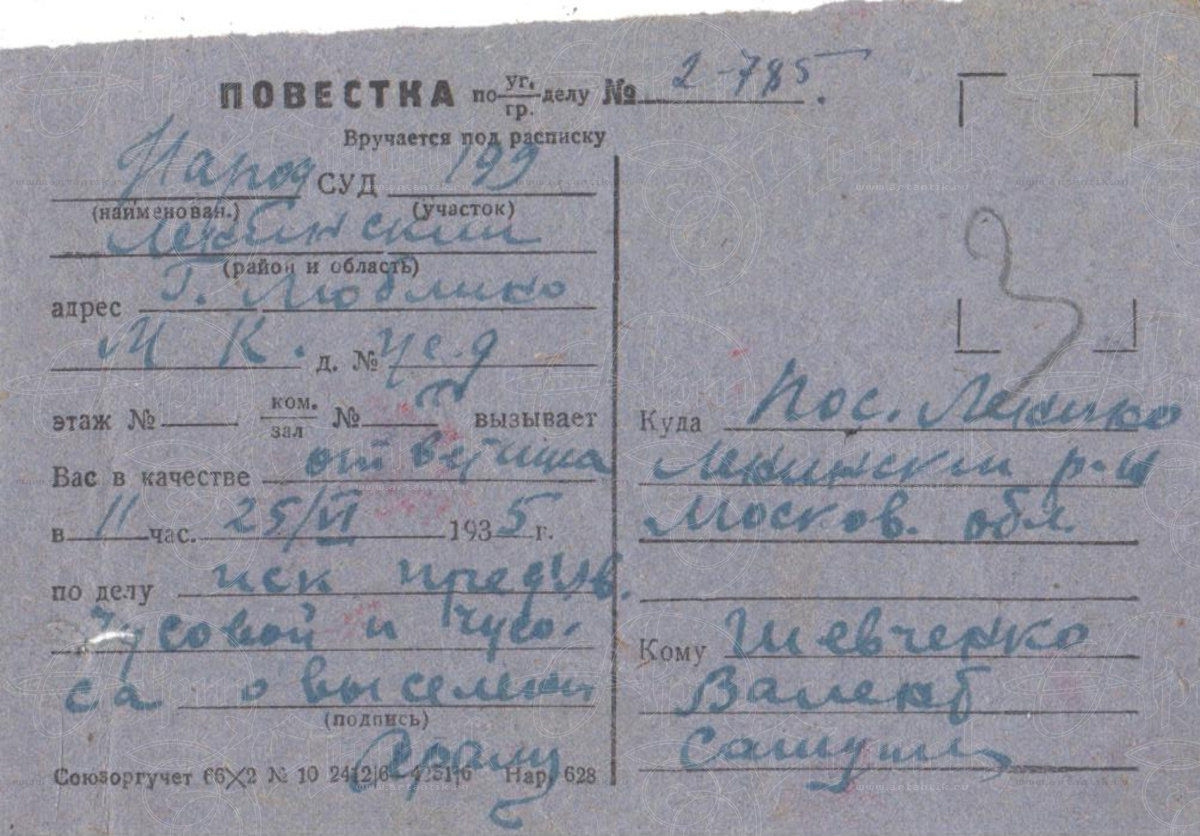 ПОВЕСТКА по уг./гр. делу № 2-785.
Вручается под расписку
Народ СУД 199
(наименован.) (участок)
Ленинский
(район и область)
адрес Г. Люблино
М К. д. №
этаж № ком./зал № вызывает
Вас в качестве ответчика
в 11 час. 25/VI 1935 г.
по делу иск предъяв.
Чусовой и Чусо-
са о выселении
(подпись)
Союзоргучет 66×2 № 10 Нар. 628
Куда Пос. Ленино
Ленинский р-н
Москов. обл
Кому Шевченко